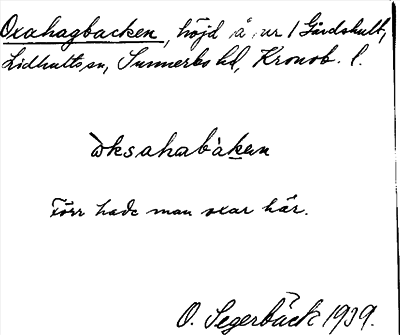 Oxahagbacken, höjd å nr 1 Gårdshult,
Lidhults sn, Sunnerbo hd, Kronob. l.
oksahabàkan
Förr hade man oxar här.
O. Segerbäck 1939.